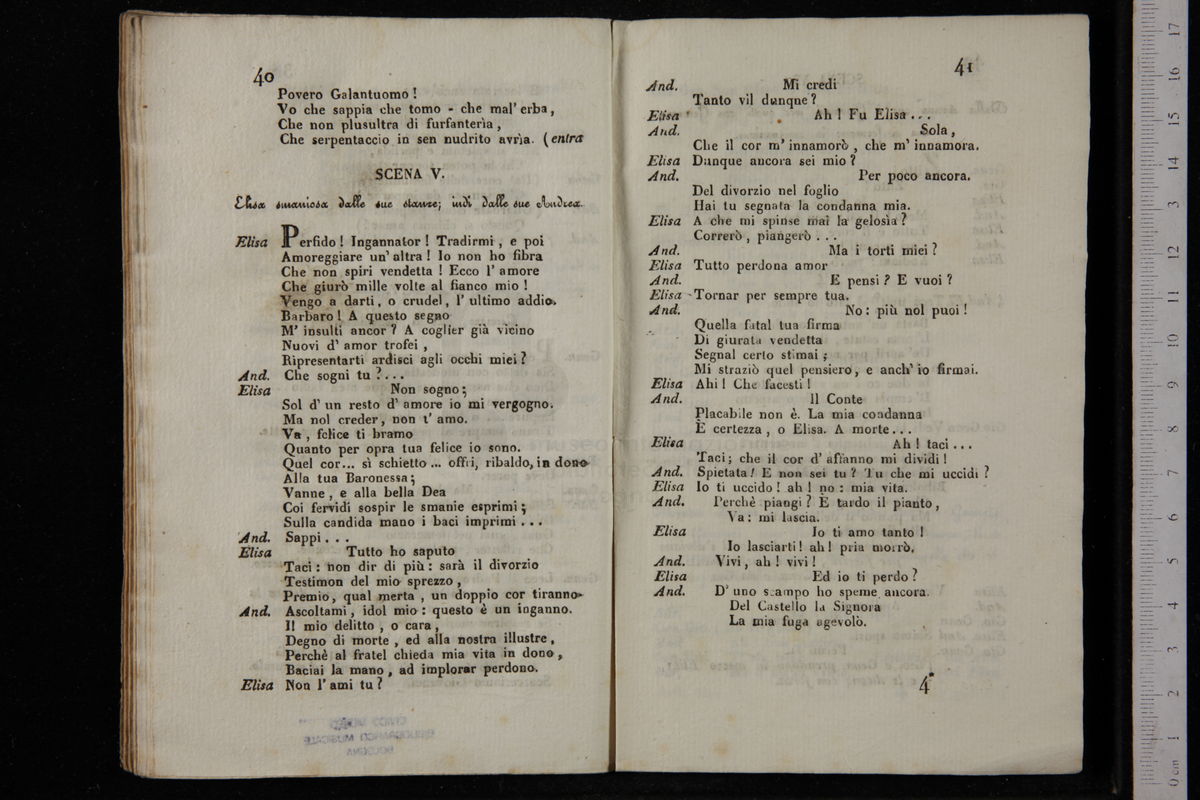 40
Povero Galantuomo !
Vo che sappia che tomo - che mal' erba,
Che non plusultra di furfanterìa,
Che serpentaccio in sen nudrito avrìa. (entra
SCENA V.
Elisa smaniosa dalle sue stanze; indi dalle sue Andrea.
Elisa Perfido ! Ingannator ! Tradirmi, e poi
Amoreggiare un' altra ! Io non ho fibra
Che non spiri vendetta ! Ecco l' amore
Che giurò mille volte al fianco mio !
Vengo a darti, o crudel, l' ultimo addio.
Barbaro ! A questo segno
M' insulti ancor ? A coglier già vicino
Nuovi d' amor trofei ,
Ripresentarti ardisci agli occhi miei ?
And. Che sogni tu ?...
Elisa Non sogno;
Sol d' un resto d' amore io mi vergogno.
Ma nol creder, non t' amo.
Va, felice ti bramo
Quanto per opra tua felice io sono.
Quel cor... sì schietto ... offri, ribaldo, in dono
Alla tua Baronessa;
Vanne, e alla bella Dea
Coi fervidi sospir le smanie esprimi;
Sulla candida mano i baci imprimi ...
And. Sappi...
Elisa Tutto ho saputo
Taci : non dir di più : sarà il divorzio
Testimon del mio sprezzo ,
Premio, qual merta , un doppio cor tiranno.
And. Ascoltami, idol mio : questo è un inganno.
Il mio delitto , o cara ,
Degno di morte , ed alla nostra illustre ,
Perchè al fratel chieda mia vita in dono ,
Baciai la mano , ad implorar perdono.
Elisa Non l' ami tu ?
41
And. Mi credi
Tanto vil dunque ?
Elisa Ah ! Fu Elisa ...
And. Sola ,
Che il cor m' innamorò , che m' innamora.
Elisa Dunque ancora sei mio ?
And. Per poco ancora.
Del divorzio nel foglio
Hai tu segnata la condanna mia.
Elisa A che mi spinse mai la gelosìa ?
Correrò , piangerò ...
And. Ma i torti miei ?
Elisa Tutto perdona amor
And. E pensi ? E vuoi ?
Elisa Tornar per sempre tua.
And. No : più nol puoi !
Quella fatal tua firma
Di giurata vendetta
Segnal certo stimai ;
Mi straziò quel pensiero, e anch' io firmai.
Elisa Ahi ! Che facesti !
And. Il Conte
Placabile non è. La mia condanna
È certezza , o Elisa. A morte...
Elisa Ah ! taci ...
Taci; che il cor d' affanno mi dividi !
And. Spietata! E non sei tu ? Tu che mi uccidi ?
Elisa Io ti uccido ! ah ! no : mia vita.
And. Perchè piangi ? E tardo il pianto,
Va : mi lascia.
Elisa Io ti amo tanto !
Io lasciarti ! ah ! pria morrò,
And. Vivi, ah ! vivi !
Elisa Ed io ti perdo ?
And. D' uno scampo ho speme ancora.
Del Castello la Signora
La mia fuga agevolò.
4*
CIVICO MUSEO
BIBLIOGRAFICO MUSICALE
BOLOGNA
0 cm 1 2 3 4 5 6 7 8 9 10 11 12 13 14 15 16 17